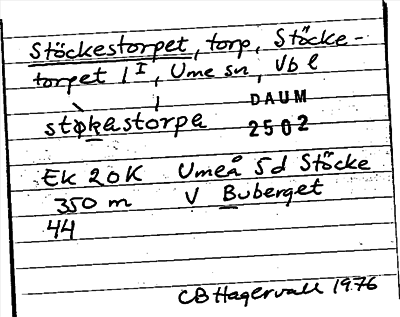 Stöckestorpet, torp, Stöcke-
torpet 1 I, Ume sn, Vb l
støkastorpa DAUM
2502
Ek 20K Umeå 5d Stöcke
350 m V Buberget
44
CB Hagervall 1976